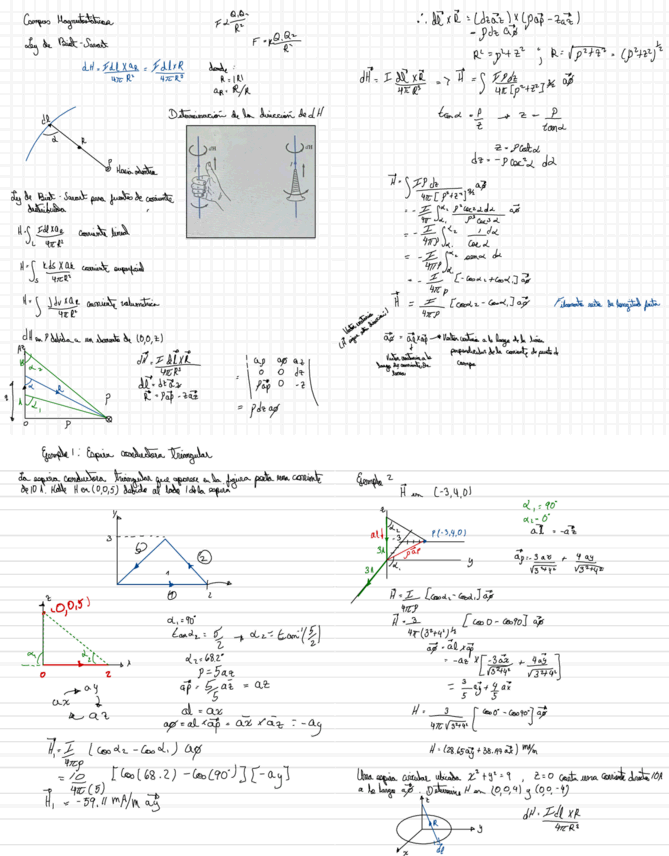 Campos Magnetostáticos
F α Q₁Q₂/R²
Ley de Biot-Savart
F = k Q₁Q₂/R²
dH = I dl × aR / 4πR² = I dl × R / 4πR³
donde:
R = |R|
aR = R/R
Determinación de la dirección de dH
dl
α
R
H
I
Ley de Biot-Savart para fuentes de corriente distribuida
H = ∫L I dl × aR / 4πR² corriente lineal
H = ∫S k ds × aR / 4πR² corriente superficial
H = ∫ J dv × aR / 4πR² corriente volumétrica
dH en P debido a un elemento de (0,0,z)
dH = I dl × R / 4πR³
dl = dz az
R = ρ aρ - z az
| aρ aø az |
= | 0 0 dz |
| ρ 0 -z |
= ρ dz aø
∴ dl × R = (dz az) × (ρ aρ - z az)
= ρ dz aø
R² = ρ² + z² ; R = √ρ²+z² = (ρ²+z²)^½
dH = I dl × R / 4πR³ => H = ∫ I ρ dz / 4π[ρ²+z²]^3/2 aø
tan α = ρ/z → z = ρ / tan α
z = ρ cot α
dz = -ρ csc² α dα
H = ∫ I ρ dz / 4π[ρ²+z²]^3/2 aø
= -I/4π ∫α₁^α₂ ρ² csc² α dα / ρ³ csc³ α aø
= -I/4πρ ∫α₁^α₂ 1/csc α dα
= -I/4πρ ∫α₁^α₂ sen α dα
= -I/4πρ [-cos α₂ + cos α₁] aø
H = I/4πρ [cos α₂ - cos α₁] aø
Elemento recto de longitud finita
aø = al × aρ → Vector unitario a lo largo de la línea perpendicular de la corriente al punto de campo
Ejemplo 1: Espira conductora triangular
La espira conductora triangular que aparece en la figura porta una corriente
de 10 A. Halle H en (0,0,5) debido al lado 1 de la espira
y
3
1
2
(0,0,5)
z
α₁
α₂
0
2
x
ax
ay
az
α₁ = 90°
tan α₂ = 5/2 → α₂ = tan⁻¹(5/2)
α₂ = 68.2°
ρ = 5 az
aρ = 5/5 az = az
al = ax
aø = al × aρ = ax × az = -ay
H₁ = I/4πρ (cos α₂ - cos α₁) aø
= 10/4π(5) [cos(68.2) - cos(90°)] [-ay]
H₁ = -59.11 mA/m ay
Ejemplo 2
H en (-3,4,0)
α₁ = 90°
α₂ = 0°
al = -az
aρ = -3ax/√3²+4² + 4ay/√3²+4²
z
α₂
-3
P(-3,4,0)
3A
aρ
α₁
y
3A
H = I/4πρ [cos α₂ - cos α₁] aø
H = 3/4π(3²+4²)^½ [cos 0 - cos 90] aø
aø = al × aρ
= -az × [-3ax/√3²+4² + 4ay/√3²+4²]
= 3/5 ay + 4/5 ax
H = 3/4π√3²+4² [cos 0° - cos 90°] aø
H = (28.65 ay + 38.19 ax) mA/m
Una espira circular ubicada x²+y²=9, z=0 porta una corriente directa 10A
a lo largo aø. Determine H en (0,0,4) y (0,0,-4)
z
R
y
dl
x
dH = I dl × R / 4πR³